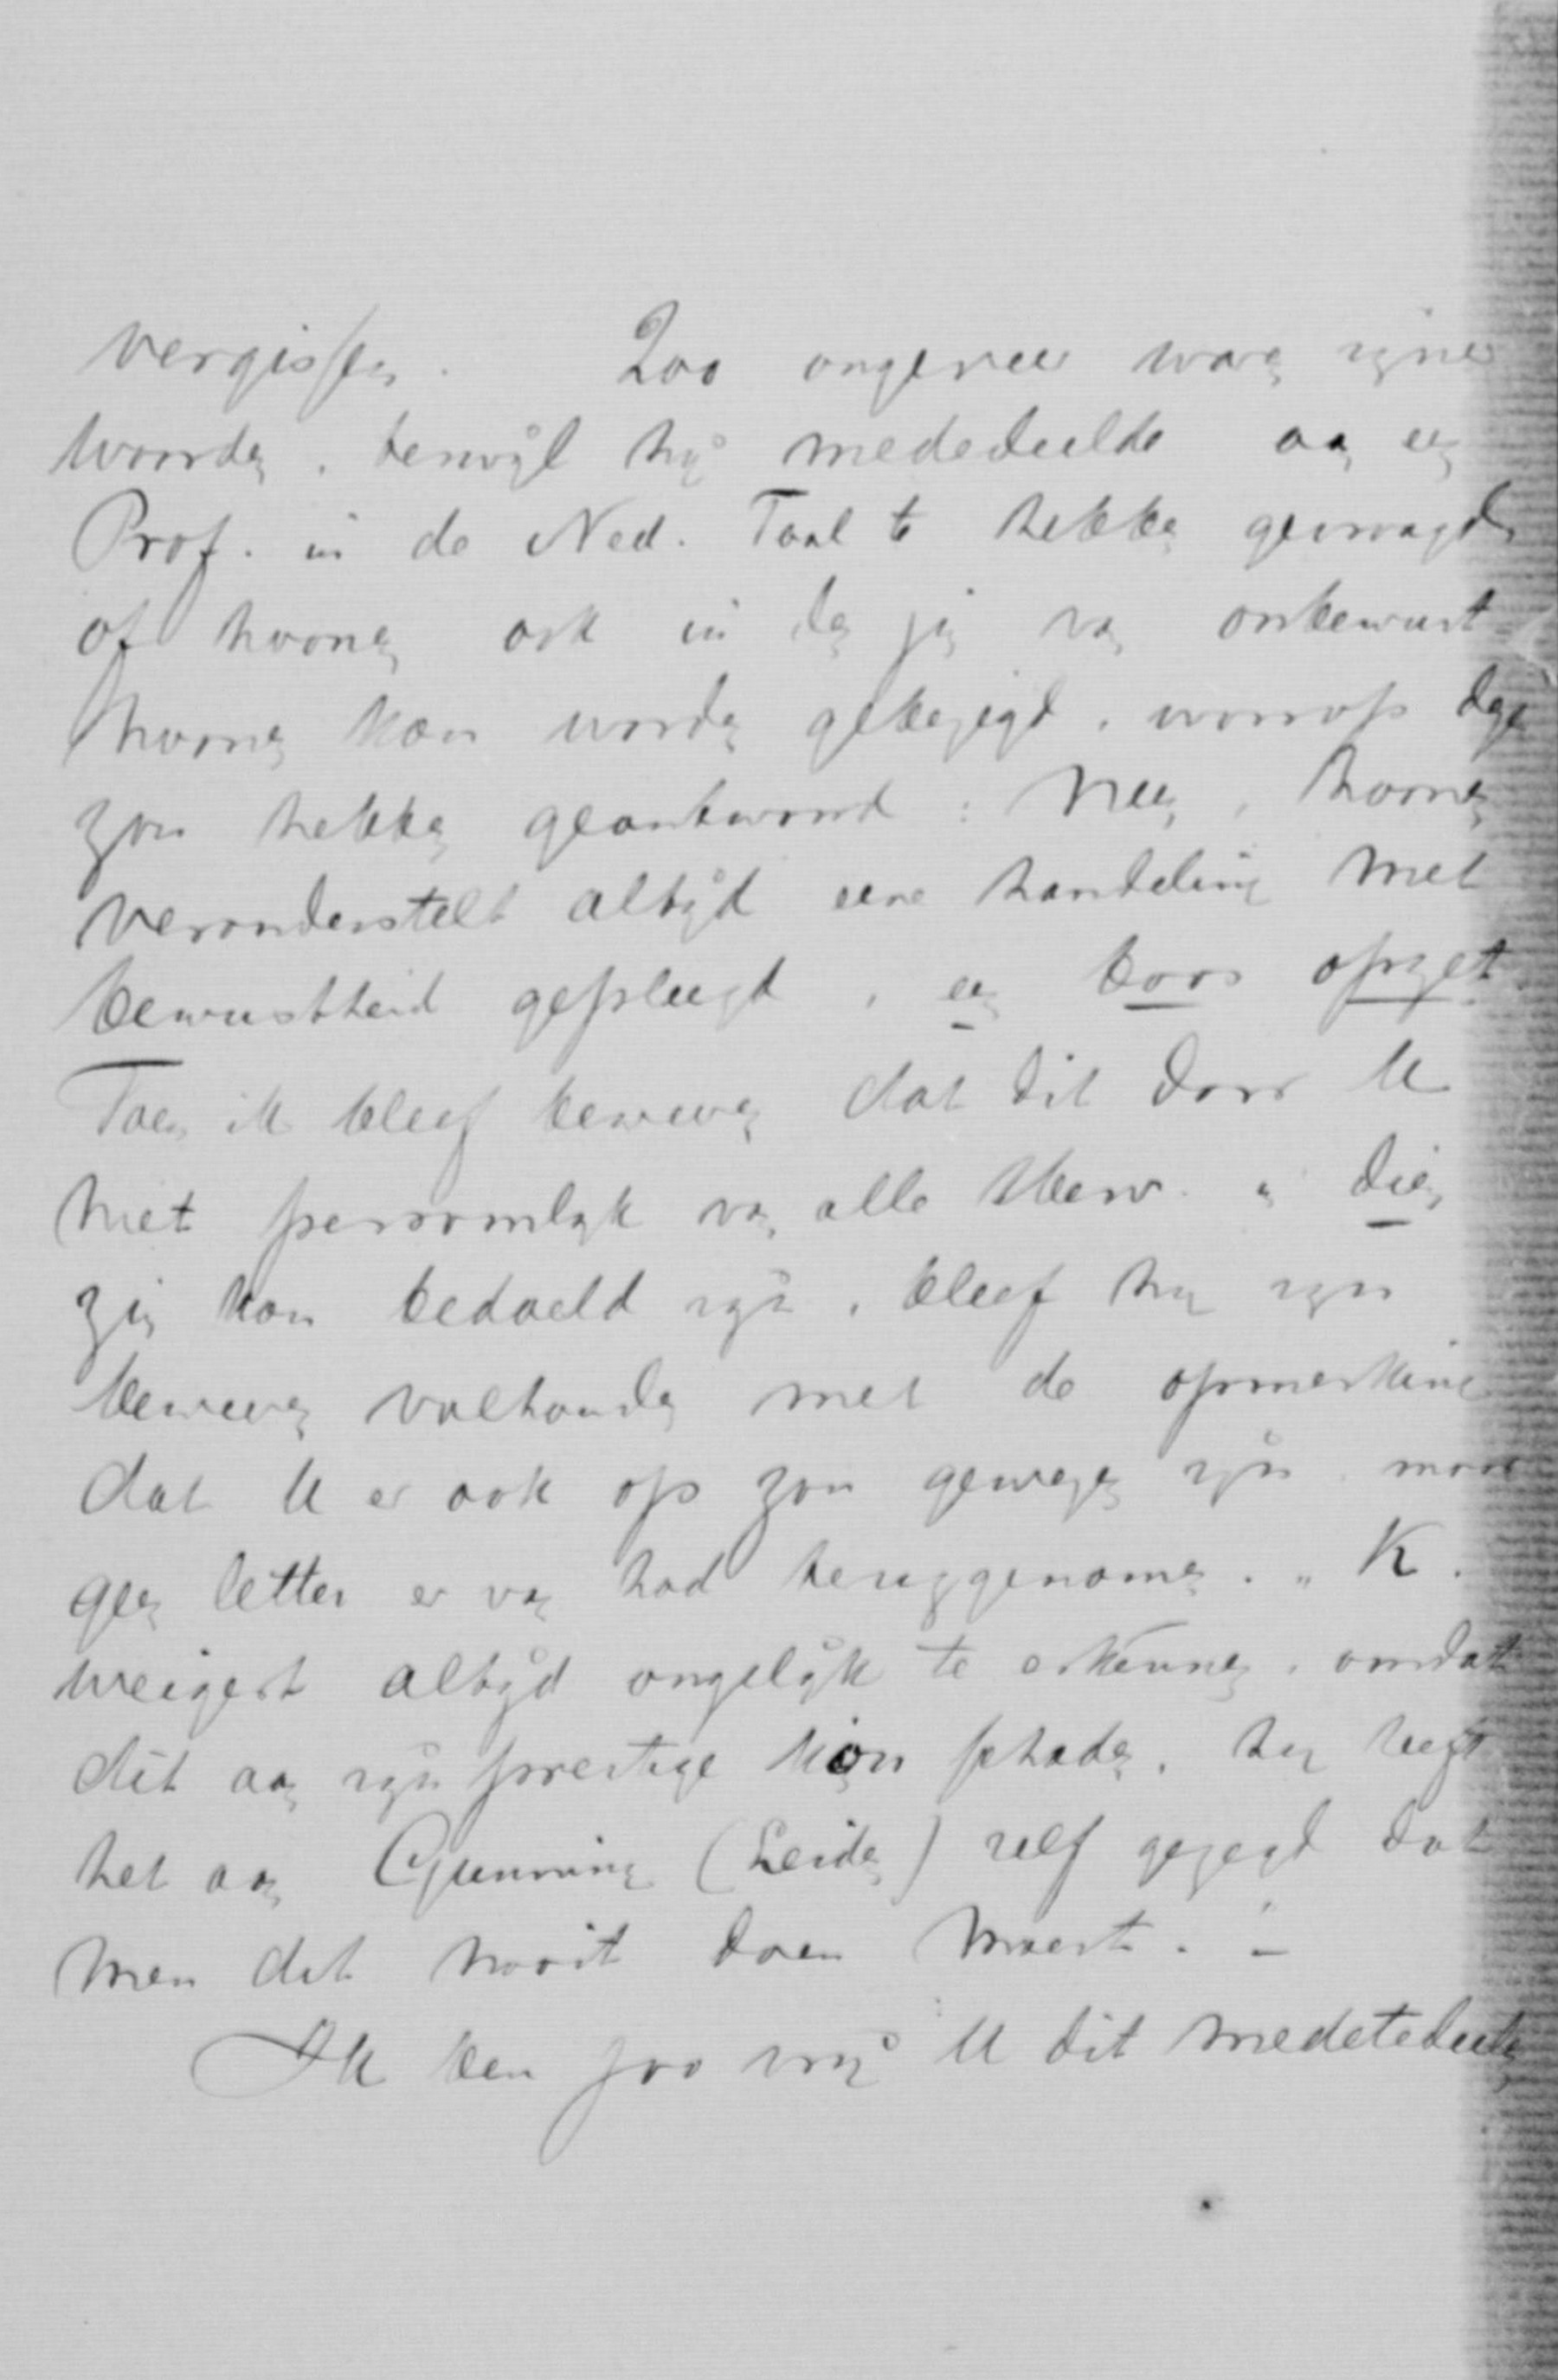 vergissen. Zoo ongeveer waren zijne
woorden, terwijl hij mededeelde aan een
Prof. in de Ned. Taal te hebben gevraagd
of hoonen ook in den zin van onbewust
hoonen kon worden gebezigd, waarop deze
zou hebben geantwoord: Neen, hoonen
veronderstelt altijd eene handeling met
bewustheid gepleegd, en boos opzet.
Toen ik bleef beweren dat dit door U
niet persoonlijk van alle en dien
zin kon bedoeld zijn, bleef hij zijn
beweren volhouden met de opmerking
dat U er ook op zou gewezen zijn maar
geen letter er van had teruggenomen. „K.
weigert altijd ongelijk te erkennen, omdat
dit aan zijn prestige kon schaden, hij heeft
het aan Gunning (Leiden) zelf gezegd dat
men dit nooit doen moest." –
Ik ben zoo vrij U dit medetedeelen